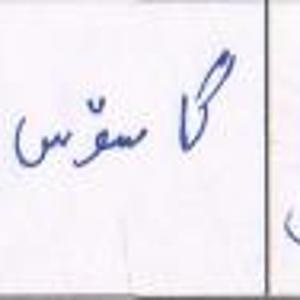 گا سۆس